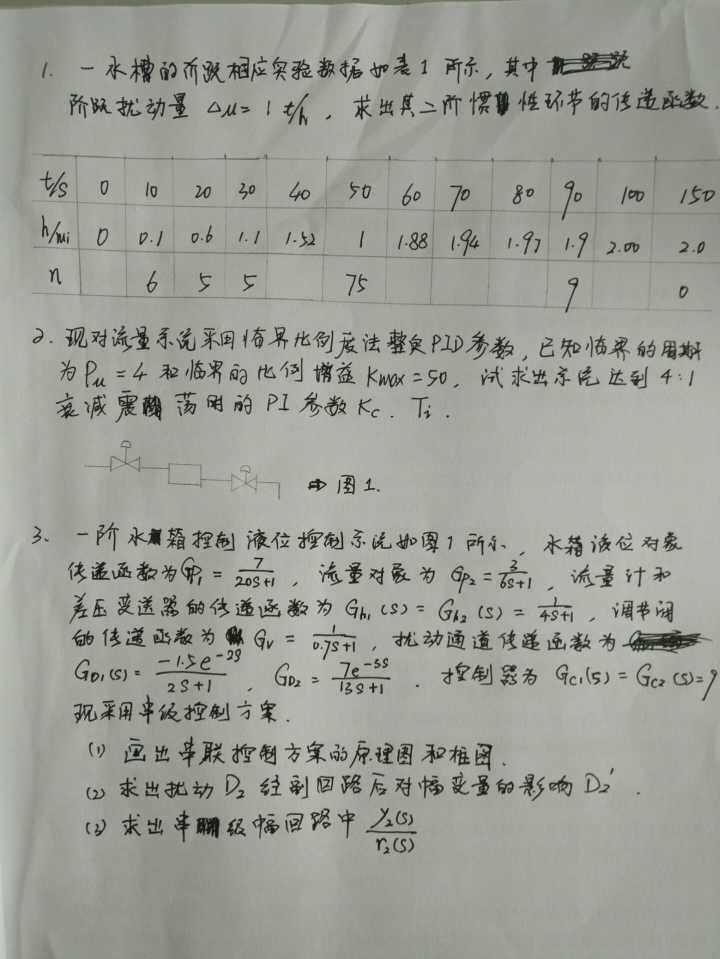 1. 一水槽的阶跃相应实验数据如表1所示,其中
阶跃扰动量 Δu=1 t/h , 求出其二阶惯性环节的传递函数.
t/s 0 10 20 30 40 50 60 70 80 90 100 150
h/mi 0 0.1 0.6 1.1 1.52 1 1.88 1.94 1.97 1.9 2.00 2.0
n 6 5 5 75 9 0
2. 现对流量系统采用临界比例度法整定PID参数, 已知临界的周期
为 Pu=4 和临界的比例增益 Kmax=50, 试求出系统达到 4:1
衰减震荡时的 PI 参数 Kc. Ti.
⇒ 图1.
3、一阶水箱控制液位控制系统如图1所示, 水箱液位对象
传递函数为 Gp1 = 7/(20s+1) , 流量对象为 Gp2 = 3/(6s+1) , 流量计和
差压变送器的传递函数为 Gh1(s) = Gh2(s) = 1/(4s+1) , 调节阀
的传递函数为 Gv = 1/(0.7s+1) , 扰动通道传递函数为
GD1(s) = -1.5e^-2s/(2s+1) , GD2 = 7e^-5s/(13s+1) . 控制器为 Gc1(s) = Gc2(s) = 9
现采用串级控制方案.
(1) 画出串联控制方案的原理图和框图.
(2) 求出扰动 D2 经副回路后对幅变量的影响 D2'.
(3) 求出串级幅回路中 y2(s)/r2(s)